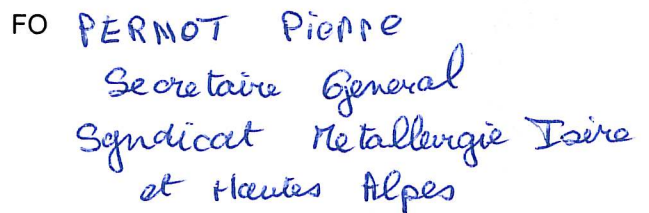 FO PERNOT Pierre
Secretaire General
Syndicat Metallurgie Isère
et Hautes Alpes